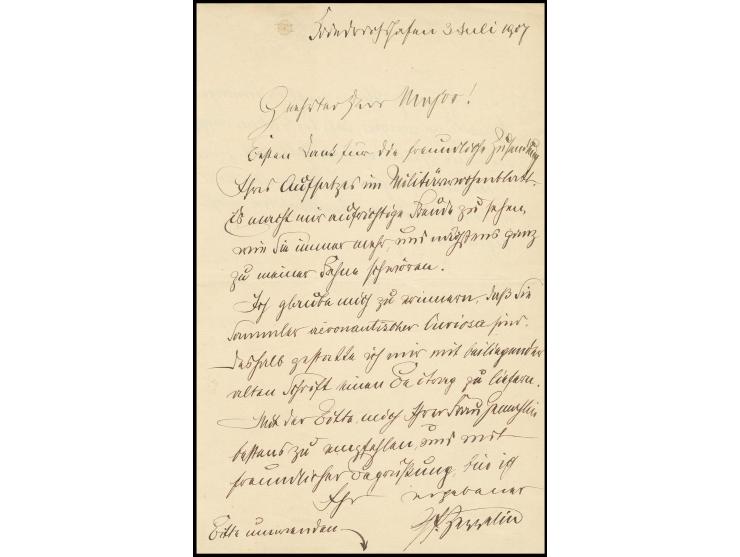 Friedrichshafen 3 Juli 1907
Geehrter Herr Major!
Besten Dank für die freundliche Zusendung
Ihres Aufsatzes im Militärwochenblatt.
Es macht mir aufrichtige Freude zu sehen,
wie Sie immer mehr, und nächstens ganz
zu meiner Fahne schwören.
Ich glaube mich zu erinnern, daß Sie
Sammler aëronautischer Curiosa sind.
Deshalb gestatte ich mir mit beiliegender
alten Schrift einen Beitrag zu liefern.
Mit der Bitte, mich Ihrer Frau Gemahlin
bestens zu empfehlen, und mit
freundlicher Begrüßung, bin ich
Ihr ergebener
Zeppelin
Bitte umwenden